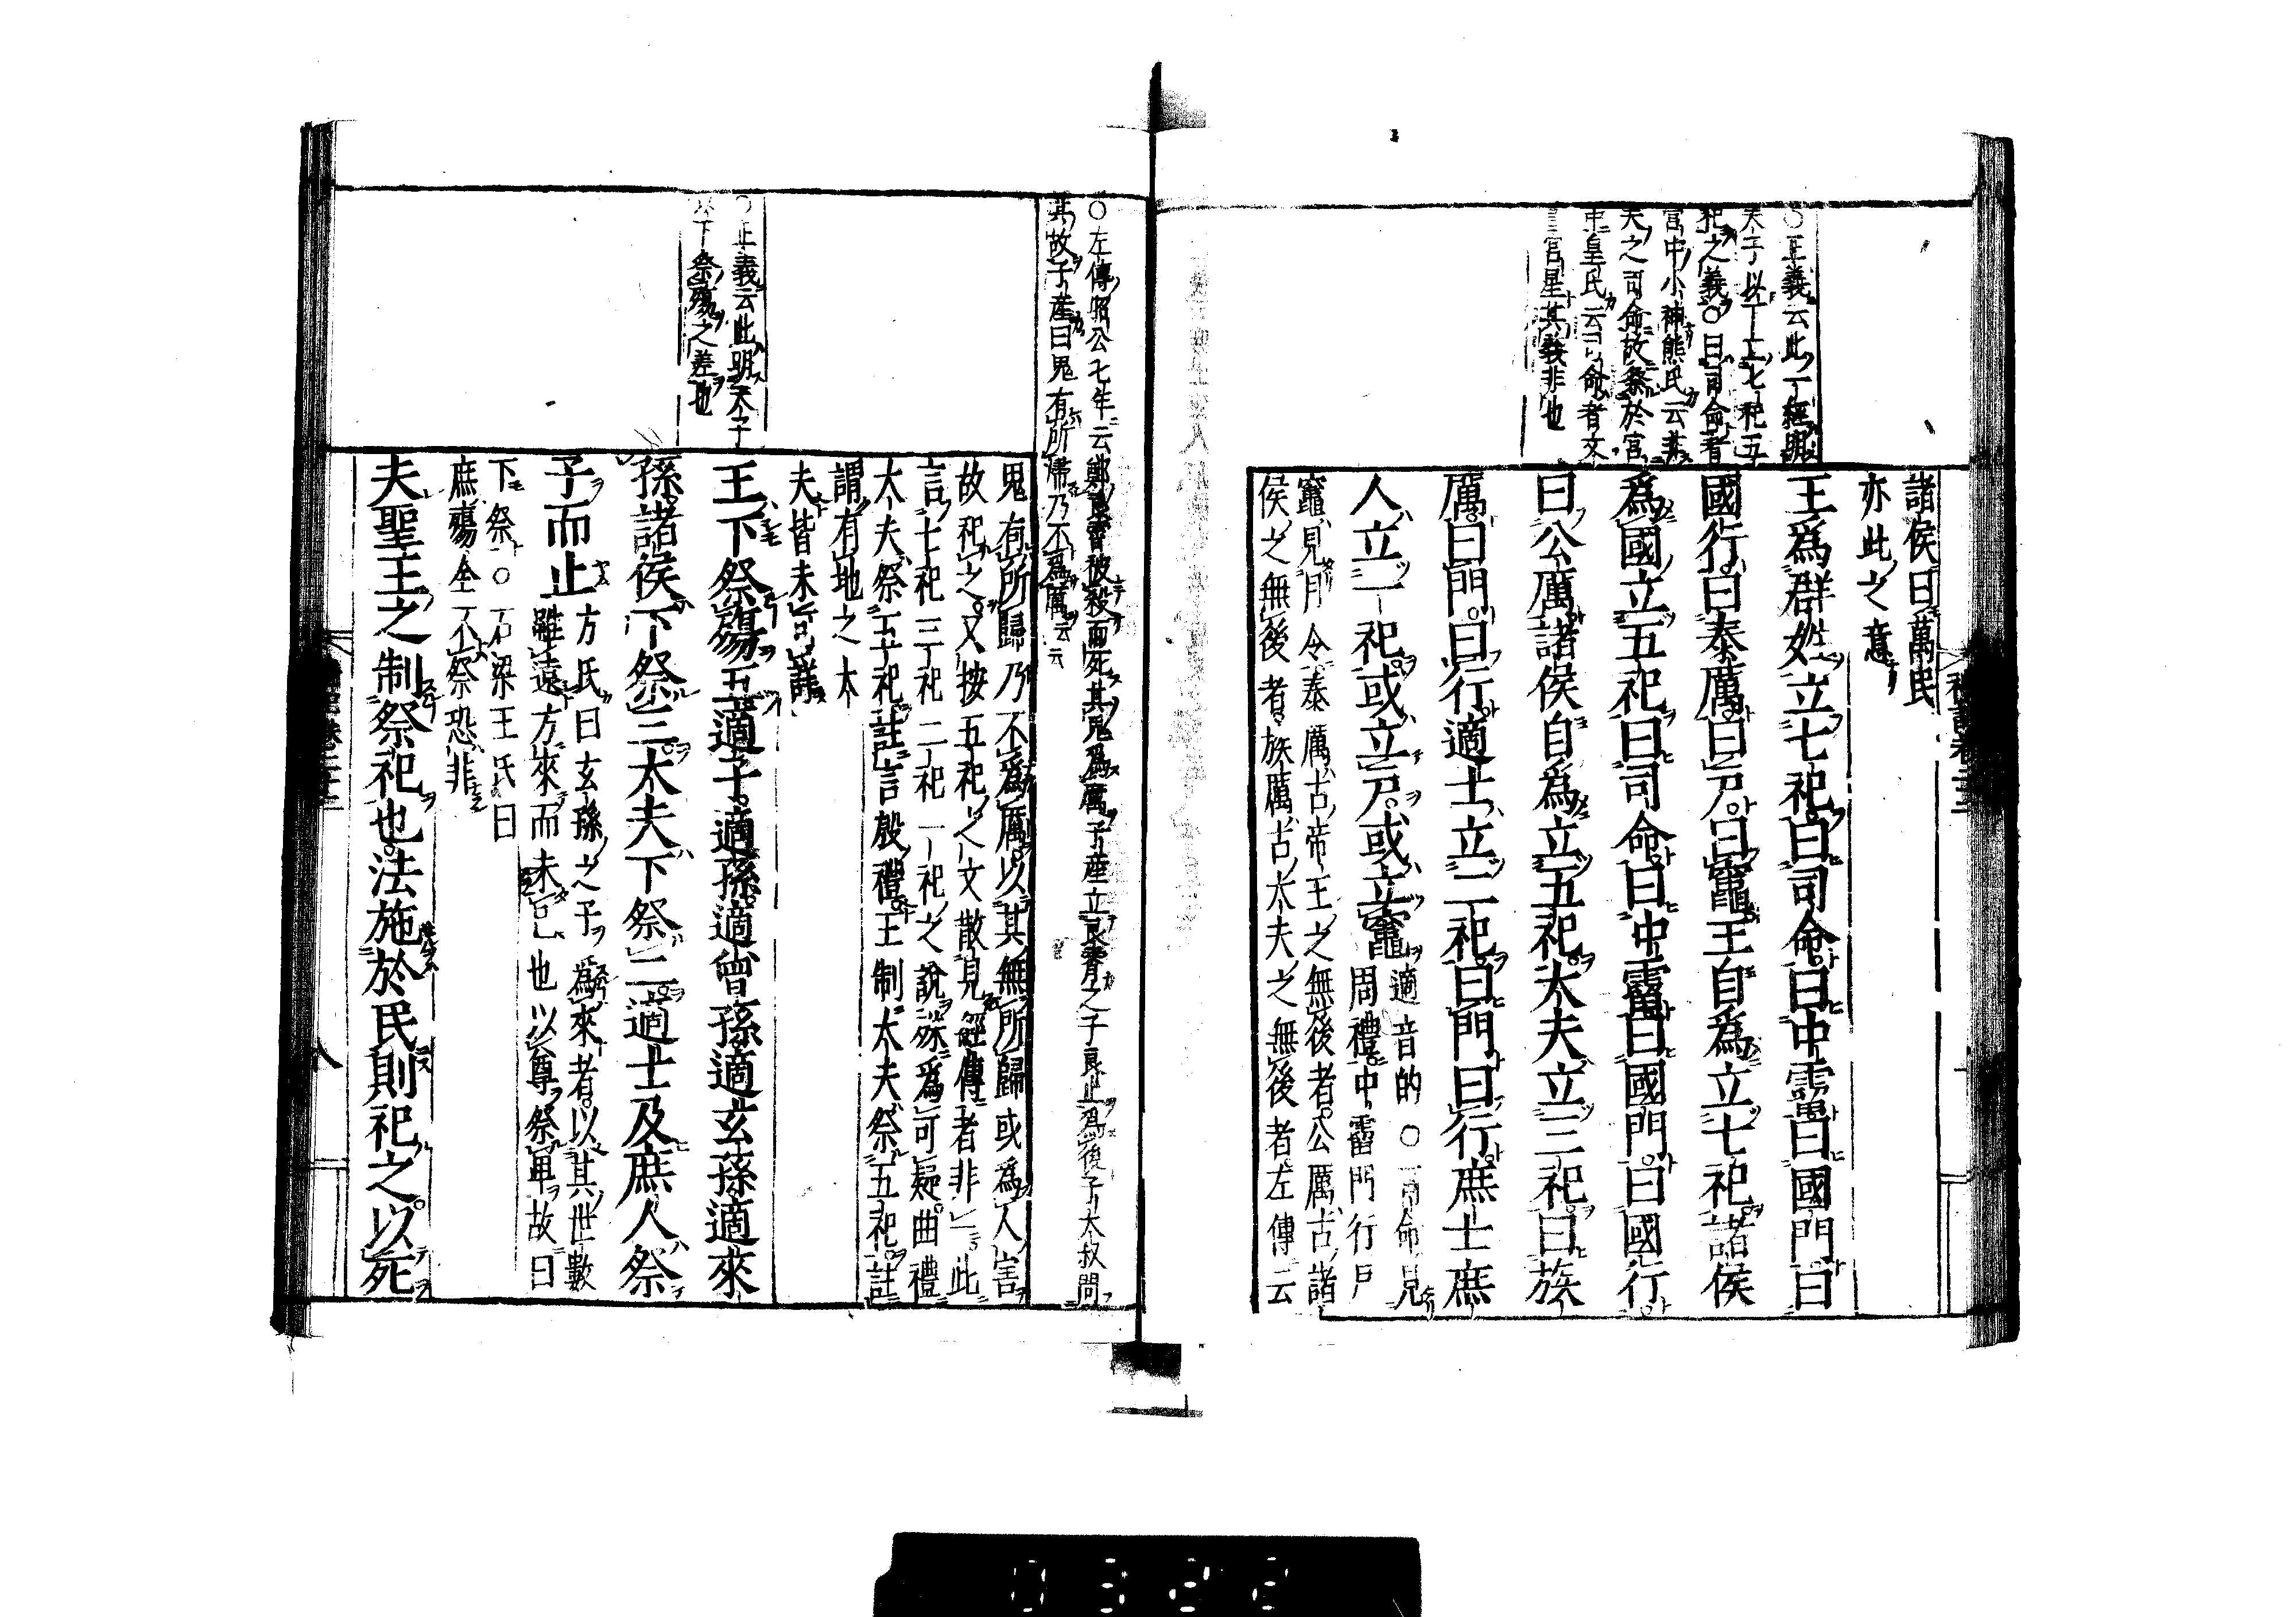 諸侯曰萬民
亦此之意
王爲群姓立七祀曰司命曰中霤曰國門曰
國行曰泰厲曰戸曰竈王自爲立七祀諸侯
爲國立五祀曰司命曰中霤曰國門曰國行
曰公厲諸侯自爲立五祀大夫立三祀曰族
厲曰門曰行適士立二祀曰門曰行庶士庶
人立一祀或立戸或立竈
適音的○司命見
周禮中霤門行戸
竈見月令泰厲古帝王之無後者公厲古諸
侯之無後者族厲古大夫之無後者左傳云
○正義云此一經明
天子以下立七祀五
祀之義○曰司命者
宮中小神熊氏云非
天之司命故祭於宮
中皇氏云司命者文
昌宮星其義非也
○左傳昭公七年云鄭良霄被殺而死其鬼爲厲子產立良霄之子良止爲後子太叔問
其故子產曰鬼有所歸乃不爲厲云云
鬼有所歸乃不爲厲以其無所歸或爲人害
故祀之又按五祀之文散見經傳者非一此
言七祀三祀二祀一祀之說殊爲可疑曲禮
大夫祭五祀註言殷禮王制大夫祭五祀註
謂有地之大
夫皆未可詳
王下祭殤五適子適孫適曾孫適玄孫適來
孫諸侯下祭三大夫下祭二適士及庶人祭
子而止
方氏曰玄孫之子爲來者以其世數
雖遠方來而未已也以尊祭卑故曰
下祭○石梁王氏曰
庶殤全不祭恐非
夫聖王之制祭祀也法施於民則祀之以死
○正義云此明天子
以下祭殤之差也
八
0322